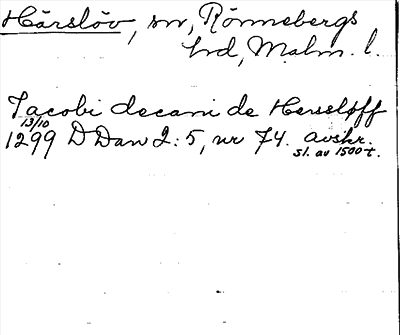 Härslöv, sn, Rönnebergs
hd, Malm. l.
Jacobi decani de Hersløff
13/10
1299 DDan 2:5, nr 74. avskr.
sl. av 1500-t.